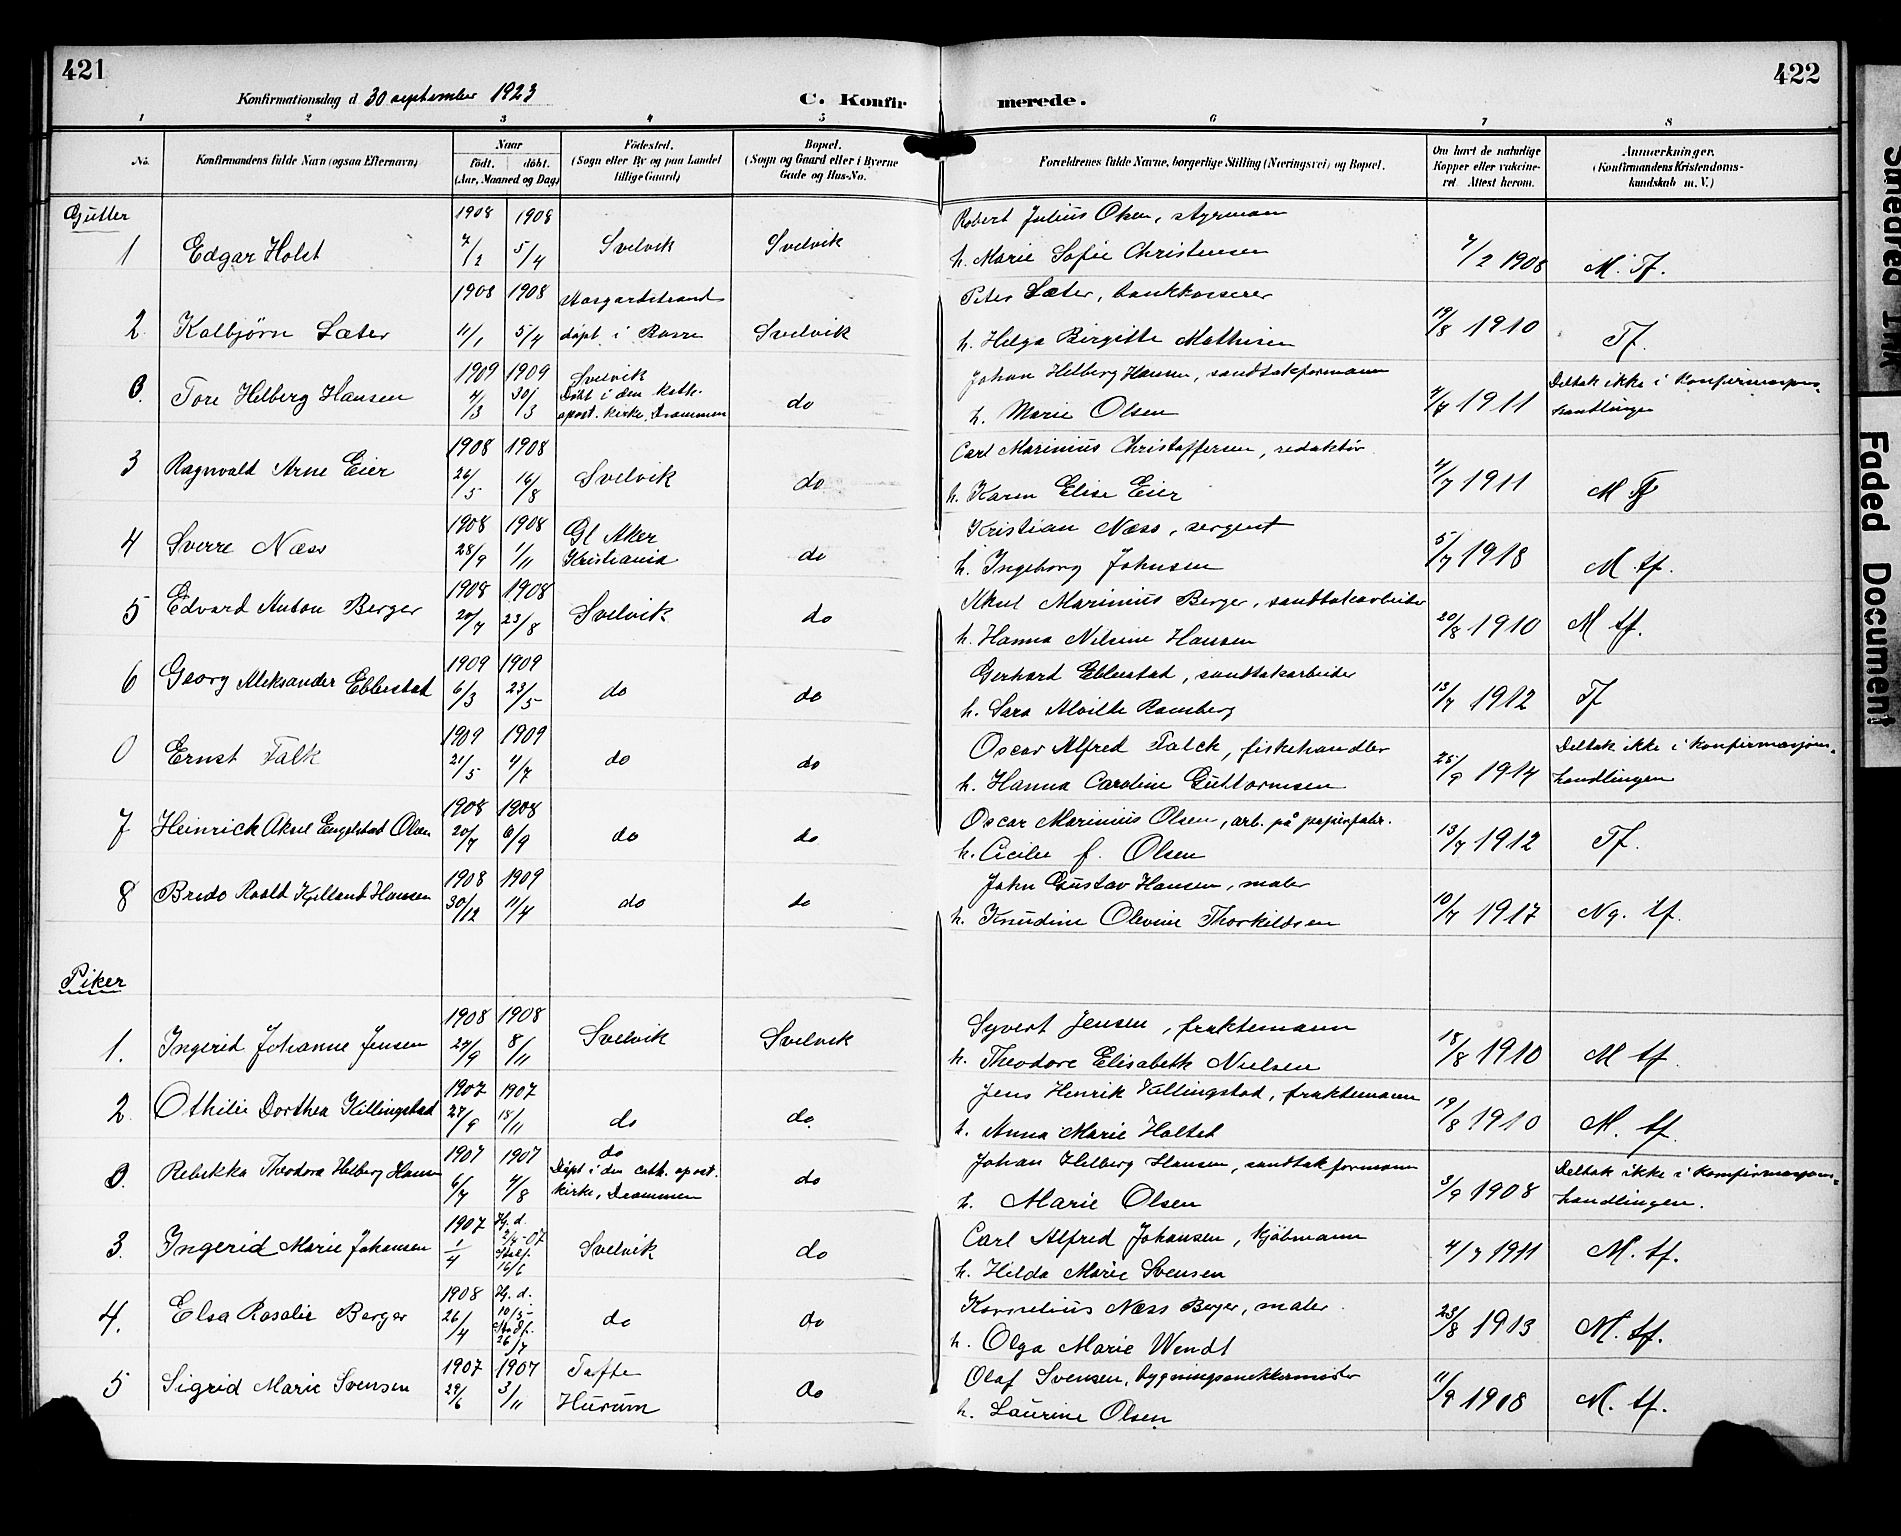 421
422
Konfirmationsdag d 30 september 1923
C. Konfirmerede.
1 2 3 4 5 6 7 8
No.
Konfirmandens fulde Navn (ogsaa Efternavn)
Naar
født. døbt.
(Aar, Maaned og Dag)
Fødested.
(Sogn eller By og paa Landet
tillige Gaard)
Bopæl.
(Sogn og Gaard eller i Byerne
Gade og Hus-No.
Forældrenes fulde Navne, borgerlige Stilling (Næringsvei) og Bopæl.
Om havt de naturlige
Kopper eller vakcine-
ret. Attest herom.
Anmærkninger.
(Konfirmandens Kristendoms-
kundskab m. V.)
Gutter
1 Edgar Holst 1908 7/2 1908 5/4 Svelvik Svelvik
Robert Julius Olsen, styrmann
h. Marie Sofie Christensen 7/2 1908 M. Tf.
2 Kolbjørn Sæter 1908 11/1 1908 5/4 Aasgardstrand
døpt i Borre Svelvik
Peter Sæter, bankkasserer
h. Helga Birgitte Mathisen 19/8 1910 Tf.
0. Tore Helberg Hansen 1909 4/3 1909 30/3 Svelvik
Døbt i den kath.
apost. kirke, Drammen do
Johan Helberg Hansen, sandtakformann
h. Marie Olsen 4/7 1911 Deltok ikke i konfirmasjons-
handlingen
3 Ragnvald Arne Eier 1908 26/5 1908 16/8 Svelvik do
Carl Marinius Christoffersen, redaktør
h. Karen Elise Eier 4/7 1911 M Tf
4 Sverre Næss 1908 28/9 1908 1/11 Gl Aker
Kristiania do
Kristian Næss, sergent
h. Ingeborg Johnsen 5/7 1918 M. tf.
5 Edvard Anton Berger 1908 20/7 1908 23/8 Svelvik do
Aksel Marinius Berger, sandtakarbeider
h. Hanna Nilsine Hansen 20/8 1910 M tf.
6 Georg Aleksander Ebbestad 1909 6/3 1909 23/5 do do
Gerhard Ebbestad, sandtakarbeider
h. Sara Alvilde Ramberg 13/7 1912 Tf
0 Ernst Falk 1909 21/5 1909 4/7 do do
Oscar Alfred Falck, fiskehandler
h. Hanna Caroline Guttormsen 25/9 1914 Deltok ikke i konfirmasjons-
handlingen
7 Heinrich Aksel Engelstad Olsen 1908 20/7 1908 6/9 do do
Oscar Marinius Olsen, arb. på papirfabr.
h. Cicilie f. Olsen 13/7 1912 Tf.
8 Bredo Roald Kjelland Hansen 1908 30/12 1909 11/4 do do
John Gustav Hansen, maler
h. Knudine Olevine Thorkildsen 10/7 1917 Ng. tf.
Piker
1. Ingerid Johanne Jensen 1908 24/9 1908 8/11 Svelvik Svelvik
Syvert Jensen, fraktemann
h. Theodore Elisabeth Nielsen 18/8 1910 M tf.
2 Othilie Dorthea Killingstad 1907 27/9 1907 18/11 do do
Jens Henrik Killingstad, fraktemann
h. Anna Marie Holtet 19/8 1910 M. tf.
0. Rebekka Theodora Helberg Hansen 1907 6/7 1907 4/8 do
Døpt i den cath. apost.
kirke, Drammen do
Johan Helberg Hansen, sandtakformann
h. Marie Olsen 3/9 1908 Deltok ikke i konfirmasjons-
handlingen.
3. Ingerid Marie Johansen 1907 1/4 Hj. d. 2/4-07 Stadf. 16/6 Svelvik do
Carl Alfred Johansen, kjøbmann
h. Hilda Marie Svensen 4/7 1911 M. tf.
4. Elsa Rosalie Berger 1908 26/4 Hj. d. 10/5- Stadf. 26/7 do do
Kornelius Næss Berger, maler
h. Olga Marie Wendt 23/8 1913 M. tf.
5 Sigrid Marie Svensen 1907 29/6 1907 3/11 Tofte
Hurum do
Olaf Svensen, bygningssnekkermester
h. Laurine Olsen 11/9 1908 M. tf.
Smeared Ink
Faded Document